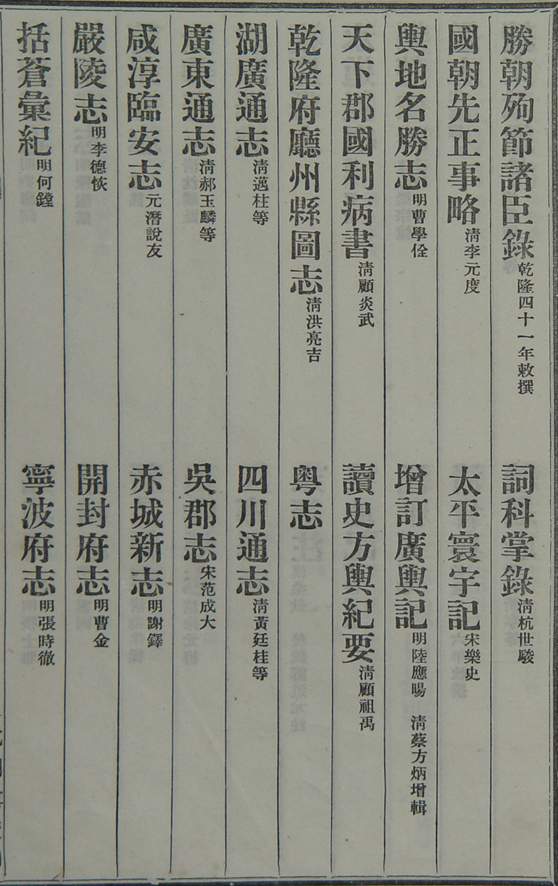 勝朝殉節諸臣錄 乾隆四十一年敕撰 詞科掌錄 清杭世駿
國朝先正事略 清李元度 太平寰宇記 宋樂史
輿地名勝志 明曹學佺 增訂廣輿記 明陸應暘 清蔡方炳增輯
天下郡國利病書 清顧炎武 讀史方輿紀要 清顧祖禹
乾隆府廳州縣圖志 清洪亮吉 粵志
湖廣通志 清邁柱等 四川通志 清黃廷桂等
廣東通志 清郝玉麟等 吳郡志 宋范成大
咸淳臨安志 元潛說友 赤城新志 明謝鐸
嚴陵志 明李德恢 開封府志 明曹金
括蒼彙紀 明何鏜 寧波府志 明張時徹